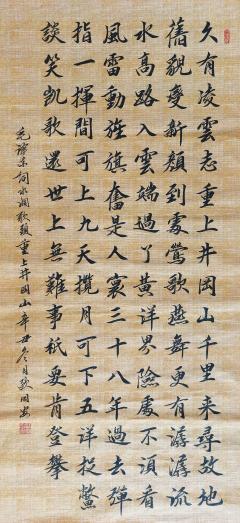 久有凌雲志重上井岡山千里来尋故地
舊貌變新顏到處鶯歌燕舞更有潺潺流
水高路入雲端過了黃洋界險處不須看
風雷動旌旗奮是人寰三十八年過去彈
指一揮間可上九天攬月可下五洋捉鱉
談笑凱歌還世上無難事衹要肯登攀
毛澤東詞水調歌頭重上井岡山辛丑冬月